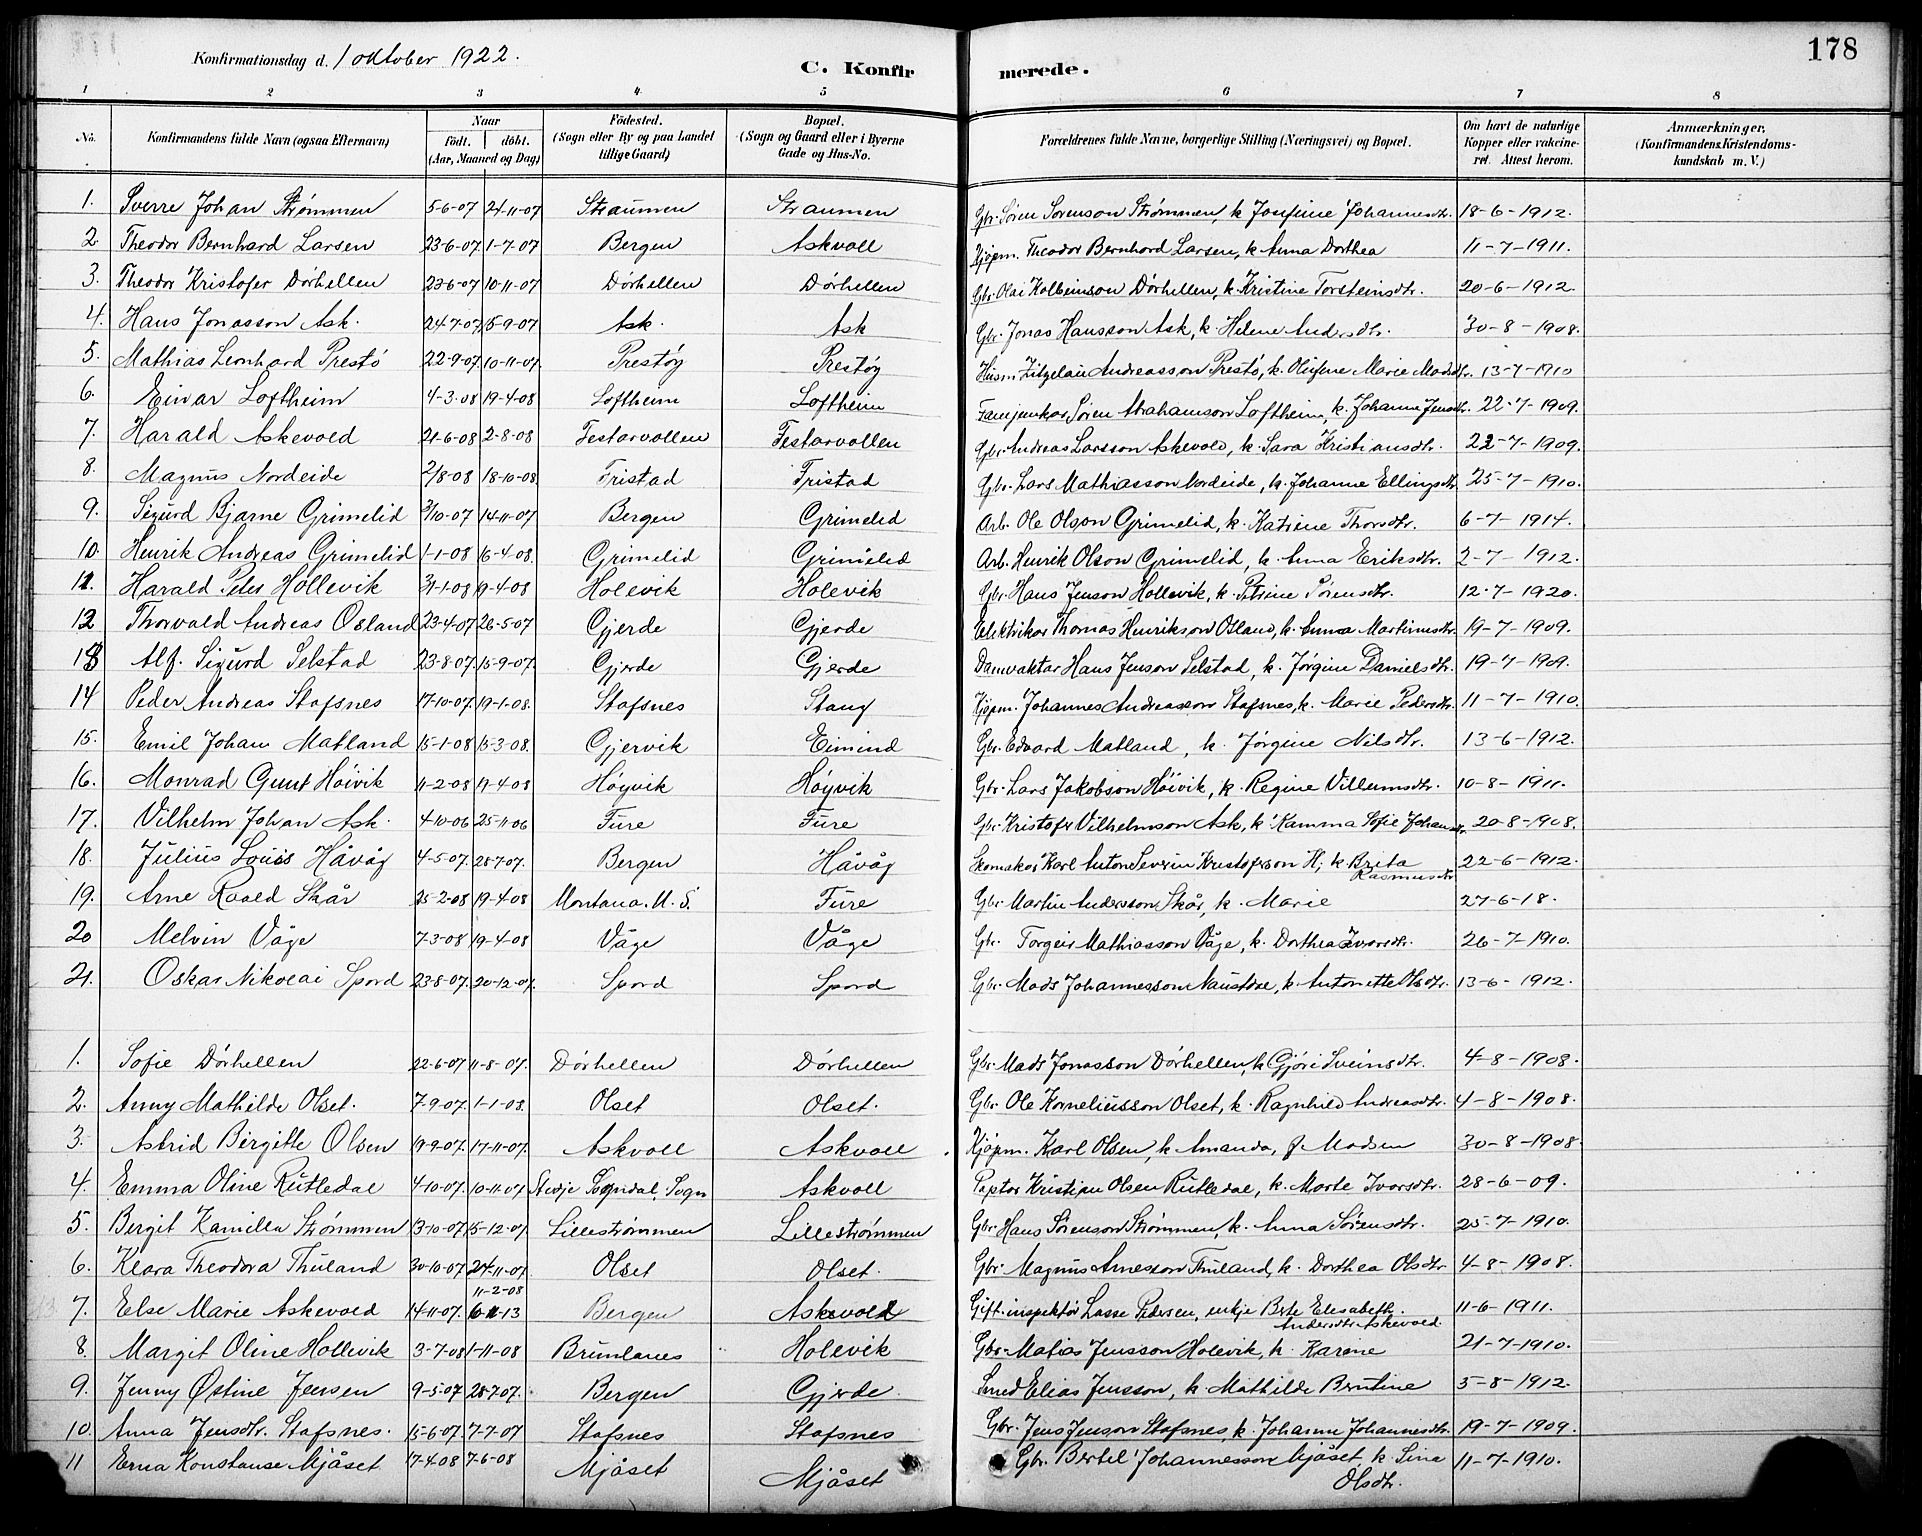 178
Konfirmationsdag d. 1 oktober 1922.
C. Konfirmerede.
1 2 3 4 5 6 7 8
No. Konfirmandens fulde Navn (ogsaa Efternavn) Naar født. døbt. (Aar, Maaned og Dag) Fødested. (Sogn eller By og paa Landet tillige Gaard) Bopæl. (Sogn og Gaard eller i Byerne Gade og Hus-No. Forældrenes fulde Navne, borgerlige Stilling (Næringsvei) og Bopæl. Om havt de naturlige Kopper eller vakcineret. Attest herom. Anmærkninger, (Konfirmandens Kristendomskundskab m. V.)
1. Sverre Johan Strømmen 5-6-07 24-11-07 Straumen Straumen Gbr. Søren Sørenson Strømmen, k. Josefine Johannesdtr. 18-6-1912.
2 Theodor Bernhard Larsen 23-6-07 1-7-07 Bergen Askvoll Kjøpm. Theodor Bernhard Larsen, k. Anna Dorthea 11-7-1911.
3. Theodor Kristofer Dørhellen 23-6-07 10-11-07 Dørhellen Dørhellen Gbr. Olai Kolbeinson Dørhellen, k. Kristine Torsteinsdtr. 20-6-1912.
4. Hans Jonasson Ask. 24-7-07 15-9-07 Ask. Ask Gbr. Jonas Hansson Ask, k. Helene Andrsdtr. 30-8-1908.
5. Mathias Leonhard Prestø 22-9-07 10-11-07. Prestøy Prestøy Husm. Andreasson Prestø, k. Olufine Marie Madsdtr. 13-7-1910
6. Einar Loftheim 4-3-08 19-4-08 Loftheim Loftheim Fanejunker Søren Abrahamson Loftheim, k. Johanne Jensdtr. 22-7-1909.
7. Harald Askevold 21-6-08 2-8-08 Festarvollen Festarvollen Gbr. Andreas Larsson Askevold, k. Sara Kristiansdtr. 22-7-1909.
8. Magnus Nordeide 2/8-08 18-10-08 Tristad Tristad Gbr. Lars Mathiasson Nordeide, k. Johanne Ellingsdtr. 25-7-1910.
9. Sigurd Bjarne Grimelid 3/10-07 14-11-07 Bergen Grimelid Arb. Ole Olson Grimelid, k. Katrine Thorsdtr. 6-7-1914.
10. Henrik Andreas Grimelid 1-1-08 16-4-08. Grimelid Grimelid Arb. Henrik Olson Grimelid, k. Anna Eriksdtr. 2-7-1912.
11. Harald Peter Hollevik 31-1-08 19-4-08 Holevik Holevik Gbr. Hans Jenson Hollevik, k. Petrine Sørensdtr. 12-7-1920.
12 Thorvald Andreas Osland 23-4-07 26-5-07 Gjerde Gjerde Elektriker Thomas Henrikson Osland, k. Anna Martinusdtr. 19-7-1909.
13 Alf. Sigurd Selstad 23-8-07 15-9-07. Gjerde Gjerde Damvaktar Hans Jenson Selstad, k. Jørgine Danielsdtr. 19-7-1909.
14 Peder Andreas Stafsnes 17-10-07. 19-1-08. Stafsnes Stang Kjøpm. Johannes Andreasson Stafsnes, k. Marie Pedersdtr. 11-7-1910.
15. Emil Johan Matland 15-1-08 15-3-08. Gjervik Eimind Gbr. Edvard Matland, k. Jørgine Nilsdtr. 13-6-1912.
16. Monrad Gunt Høivik 11-2-08 19-4-08 Høyvik Høyvik Gbr. Lars Jakobson Høivik, k. Regine Villumsdtr. 10-8-1911.
17. Vilhelm Johan Ask. 4-10-06 25-11-06 Fure Fure Gbr. Kristofer Vilhelmson Ask, k. Kamma Sofie Johansdtr. 20-8-1908.
18. Julius Louis Håvåg 4-5-07. 28-7-07. Bergen Håvåg Skomaker Karl Anton Severin Kristofersson H, k. Brita Rasmusdtr 22-6-1912.
19. Arne Roald Skår 25-2-08 19-4-08 Montana. U. S. Fure Gbr. Martin Andersson Skår, k. Marie 27-6-18.
20 Melvin Våge 7-3-08 19-4-08 Våge Våge Gbr. Torgeir Mathiasson Våge, k. Dorthea Ivarsdtr. 26-7-1910.
21. Oskar Nikolai Spord 23-8-07. 20-12-07. Spord Spord Gbr. Mads Johannesson Naustdse, k. Antonette Olsdtr. 13-6-1912.
1. Sofie Dørhellen 22-6-07 11-8-07. Dørhellen Dørhellen Gbr. Mads Jonasson Dørhellen, k. Gjøri Sveinsdtr. 4-8-1908.
2. Anny Mathilde Olset. 7-9-07. 1-1-08. Olset Olset. Gbr. Ole Korneliusson Olset, k. Ragnhild Andreasdtr. 4-8-1908.
3. Astrid Birgitte Olsen 19-9-07. 17-11-07. Askvoll Askvoll Kjøpm. Karl Olsen, k. Amanda, f. Madsen 30-8-1908.
4. Emma Oline Rutledal 4-10-07. 10-11-07 Stedje Sogndal, Sogn Askvoll Kristian Olsen Rutledal, k. Marte Ivarsdtr. 28-6-09.
5. Bergit Kamilla Strømmen 13-10-07. 15-12-07. Lillestrømmen Lillestrømmen Gbr. Hans Sørenson Strømmen, k. Anna Sørensdtr. 25-7-1910.
6. Klara Theodora Thuland 30-10-07 24-11-07 Olset Olset. Gbr. Magnus Arnesson Thuland, k. Dorthea Olsdtr 4-8-1908.
7. Else Marie Askevold 14-11-07. 11-2-08 6-11-13 Bergen Askevold Gift. inspektør Lasse Pedersen, enkje Brte Elisabeth Andersdtr. Askevold 11-6-1911.
8. Margit Oline Hollevik 3-7-08 1-11-08 Brumlanes Holevik Gbr. Matias Jensson Holevik, k. Karine 21-7-1910.
9. Jenny Østine Jensen 9-5-07 28-7-07. Bergen Gjerde. Smed Elias Jensson, k. Mathilde Berntine 5-8-1912.
10. Anna Jensdtr. Stafsnes. 15-6-07. 7-7-07 Stafsnes Stafsnes Gbr. Jens Jenson Stafsnes, k. Johanne Johannesdtr. 19-7-1909.
11 Erna Konstanse Mjåset 17-4-08 7-6-08 Mjåset Mjåset Gbr. Bertel Johannesson Mjåset, k. Sina Olsdtr. 11-7-1910.